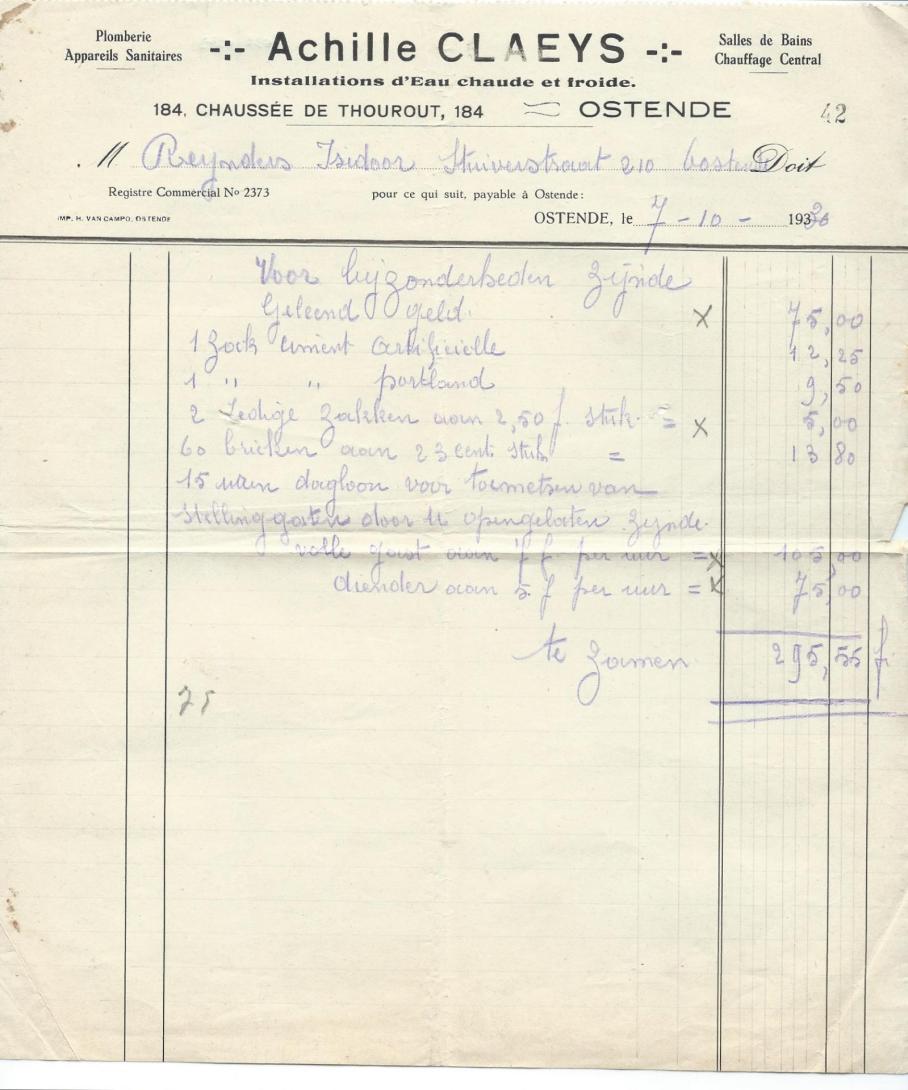 Plomberie
Appareils Sanitaires
-:- Achille CLAEYS -:-
Salles de Bains
Chauffage Central
Installations d'Eau chaude et froide.
184, CHAUSSÉE DE THOUROUT, 184 OSTENDE
42
M Reynders Isidoor Stuiverstraat 210 Oostende Doit
Registre Commercial No 2373 pour ce qui suit, payable à Ostende:
IMP. H. VAN CAMPO, OSTENDE
OSTENDE, le 7 - 10 - 193
Voor bijzonderheden zijnde
Geleend geld. X 75,00
1 Zack ciment artificielle 12,25
1 " " portland 9,50
2 Ledige zakken aan 2,50 f. stuk = X 5,00
60 bricken aan 23 cent stuk = 13 80
15 uren dagloon voor toemetsen van
stellinggaten door U opengelaten zijnde.
volle gast aan 7 f. per uur = X 105,00
diender aan 5 f per uur = X 75,00
te zamen 295,55 f.
75